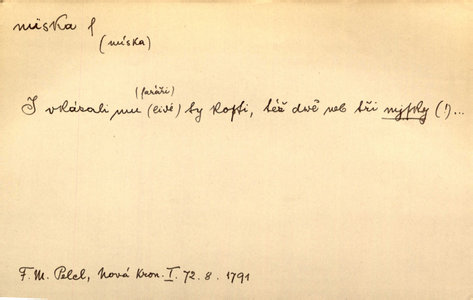 miska f
(míska)
(faráři)
I vkázali mu (lidé) ty kosti, též dwě neb tři mysky (!)...
F. M. Pelcl, Nová Kron. I. 72. 8. 1791